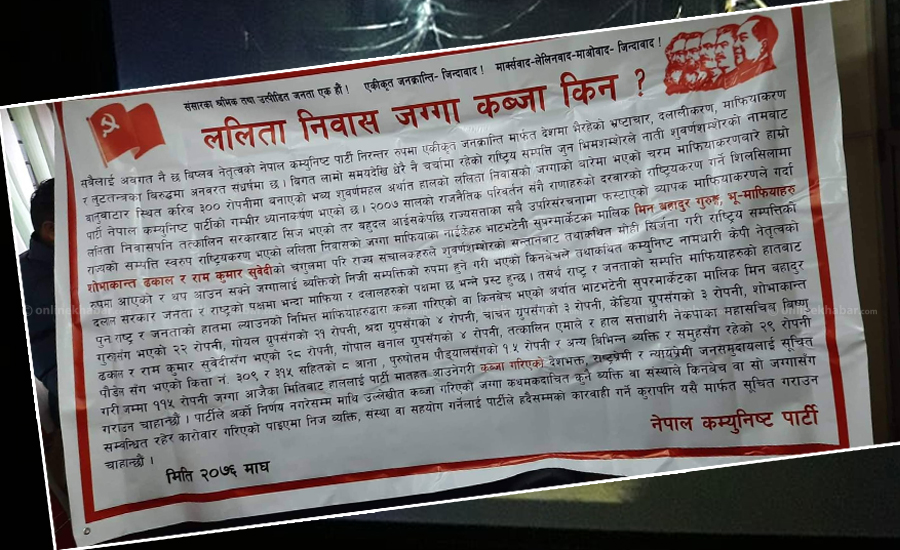 संसारका श्रमिक तथा उत्पीडित जनता एक हौ ! एकीकृत जनक्रान्ति- जिन्दावाद ! मार्क्सवाद-लेलिनवाद-माओवाद- जिन्दावाद !
ललिता निवास जग्गा कब्जा किन ?
सबैलाई अवगत नै छ विप्लव नेतृत्वको नेपाल कम्युनिष्ट पार्टी निरन्तर रुपमा एकीकृत जनक्रान्ति मार्फत देशमा भैरहेको भ्रष्टाचार, दलालीकरण, माफियाकरण
र लुटतन्त्रका विरुद्धमा अनवरत संघर्षमा छ । विगत लामो समयदेखि धेरै नै चर्चामा रहेको राष्ट्रिय सम्पत्ति जुन भिमशम्शेरले नाती शुवर्णशम्शेरको नामबाट
बालुवाटार स्थित करिब ३०० रोपनीमा बताएको भव्य शुवर्णमहल अर्थात हालको ललिता निवासको जग्गाको बारेमा भएको चरम माफियाकरणबारे हाम्रो
पार्टी नेपाल कम्युनिष्ट पार्टीको गम्भीर ध्यानाकर्षण भएको छ । २००७ सालको राजनैतिक परिवर्तन संगै राणाहरुको दरबारको राष्ट्रियकरण गर्ने शिलसिलामा
ललिता निवासपनि तत्कालिन सरकारबाट सिज भएको तर बहुदल आईसकेपछि राज्यसत्ताका सबै उपरिसंरचनामा फस्टाएको व्यापक माफियाकरणले गर्दा
राज्यको सम्पत्ति स्वरुप राष्ट्रियकरण भएको ललिता निवासको जग्गा माफियाका नाईकेहरु भाटभटेनी सुपरमार्केटका मालिक मिन बहादुर गुरुङ, भू-माफियाहरु
शोभाकान्त ढकाल र राम कुमार सुवेदीको चंगुलमा परि राज्य संचालकहरुले शुवर्णशम्शेरको सन्तानबाट तथाकथित मोही सिर्जना गरी राष्ट्रिय सम्पत्तिको
रुपमा आएको र थप आउन सक्ने जग्गालाई व्यक्तिको निजी सम्पत्तिको रुपमा हुने गरी भएको किनबेचले तथाकथित कम्युनिष्ट नामधारी केपी नेतृत्वको
दलाल सरकार जनता र राष्ट्रको पक्षमा भन्दा माफिया र दलालहरुको पक्षमा छ भन्ने प्रस्ट हुन्छ । तसर्थ राष्ट्र र जनताको सम्पत्ति माफियाहरुको हातबाट
पुनः राष्ट्र र जनताको हातमा ल्याउनको निमित्त माफियाहरुद्वारा कब्जा गरिएको वा किनबेच भएको अर्थात भाटभटेनी सुपरमार्केटका मालिक मिन बहादुर
गुरुङसँग भएको २२ रोपनी, गोयल ग्रुपसँगको २९ रोपनी, श्रद्धा ग्रुपसँगको ४ रोपनी, चाचन ग्रुपसँगको ३ रोपनी, केडिया ग्रुपसँगको ३ रोपनी, शोभाकान्त
ढकाल र राम कुमार सुवेदीसँग भएको २८ रोपनी, गोपाल खनाल ग्रुपसँगको ४ रोपनी, तत्कालिन एमाले र हाल सत्ताधारी नेकपाका महासचिव विष्णु
पौडेल सँग भएको कित्ता नं. ३०९ र ३१५ सहितको ८ आना, पुरुषोत्तम पौड्यालसँगको १५ रोपनी र अन्य विभिन्न व्यक्ति र समुहसँग रहेको २९ रोपनी
गरी जम्मा ११५ रोपनी जग्गा आजैका मितिबाट हाललाई पार्टी मातहत आउनेगरी कब्जा गरिएको देशभक्त, राष्ट्रप्रेमी र न्यायप्रेमी जनसमुदायलाई सूचित
गराउन चाहान्छौ । पार्टीले अर्को निर्णय नगरेसम्म माथि उल्लेखीत कब्जा गरिएको जग्गा कथमकदाचित कुनै व्यक्ति वा संस्थाले किनबेच वा सो जग्गासँग
सम्बन्धित रहेर कारोवार गरिएको पाइएमा निज व्यक्ति, संस्था वा सहयोग गर्नेलाई पार्टीले हदैसम्मको कारवाही गर्ने कुरापनि यसै मार्फत सूचित गराउन
चाहान्छौ ।
मिति २०७६ माघ
नेपाल कम्युनिष्ट पार्टी
onlinekhabar.com
onlinekhabar.com